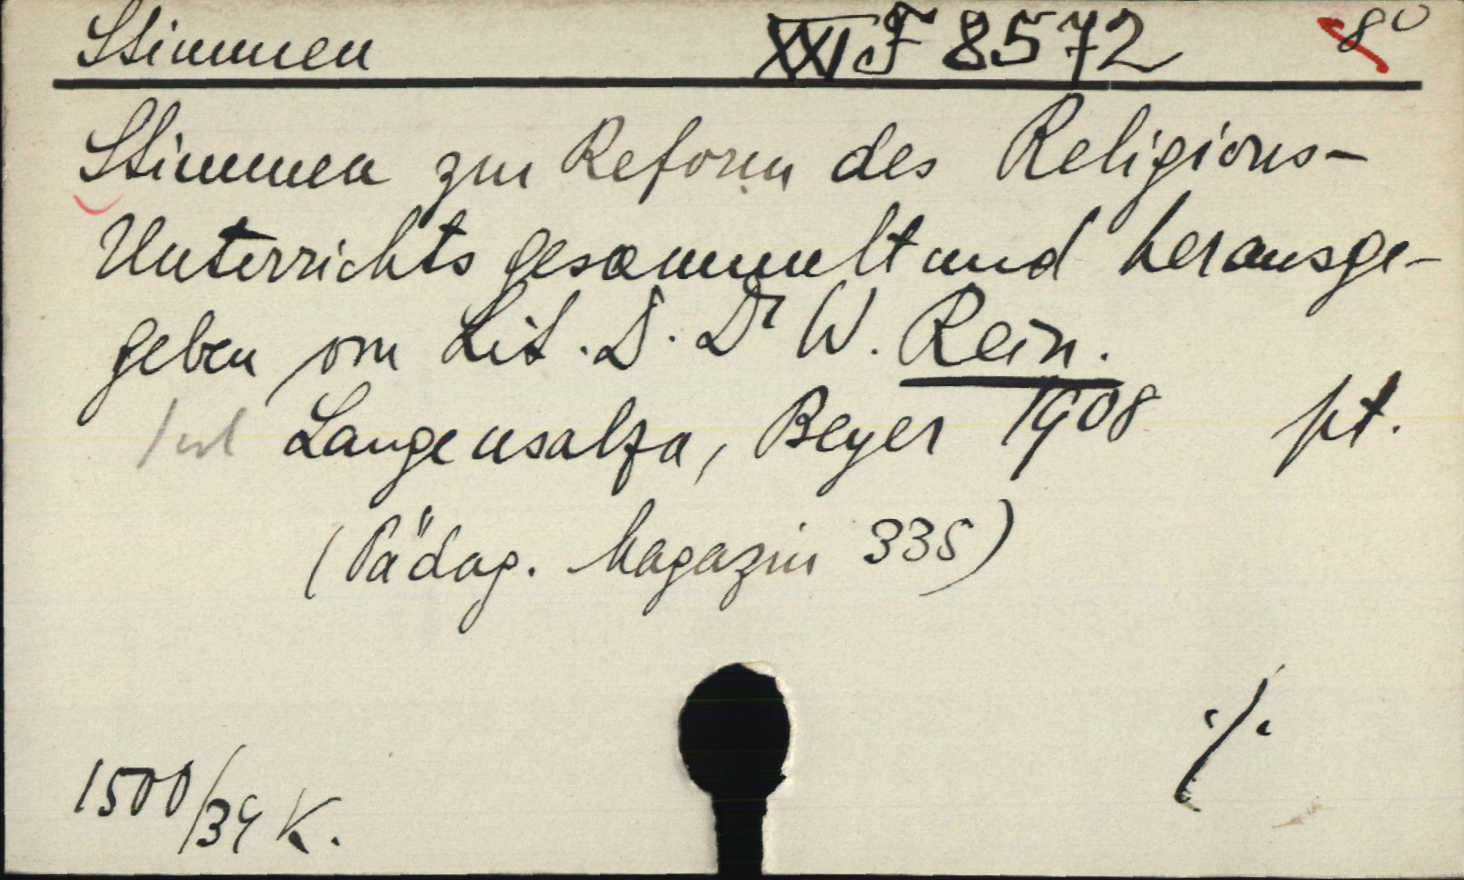 Stimmen XXI F 8572 8°
Stimmen zur Reform des Religions-
Unterrichts gesammelt und herausge-
geben von Lit. D. Dr W. Rein.
Langensalza, Beyer 1908 pt.
(Pädag. Magazin 335)
./.
1500/34 K.